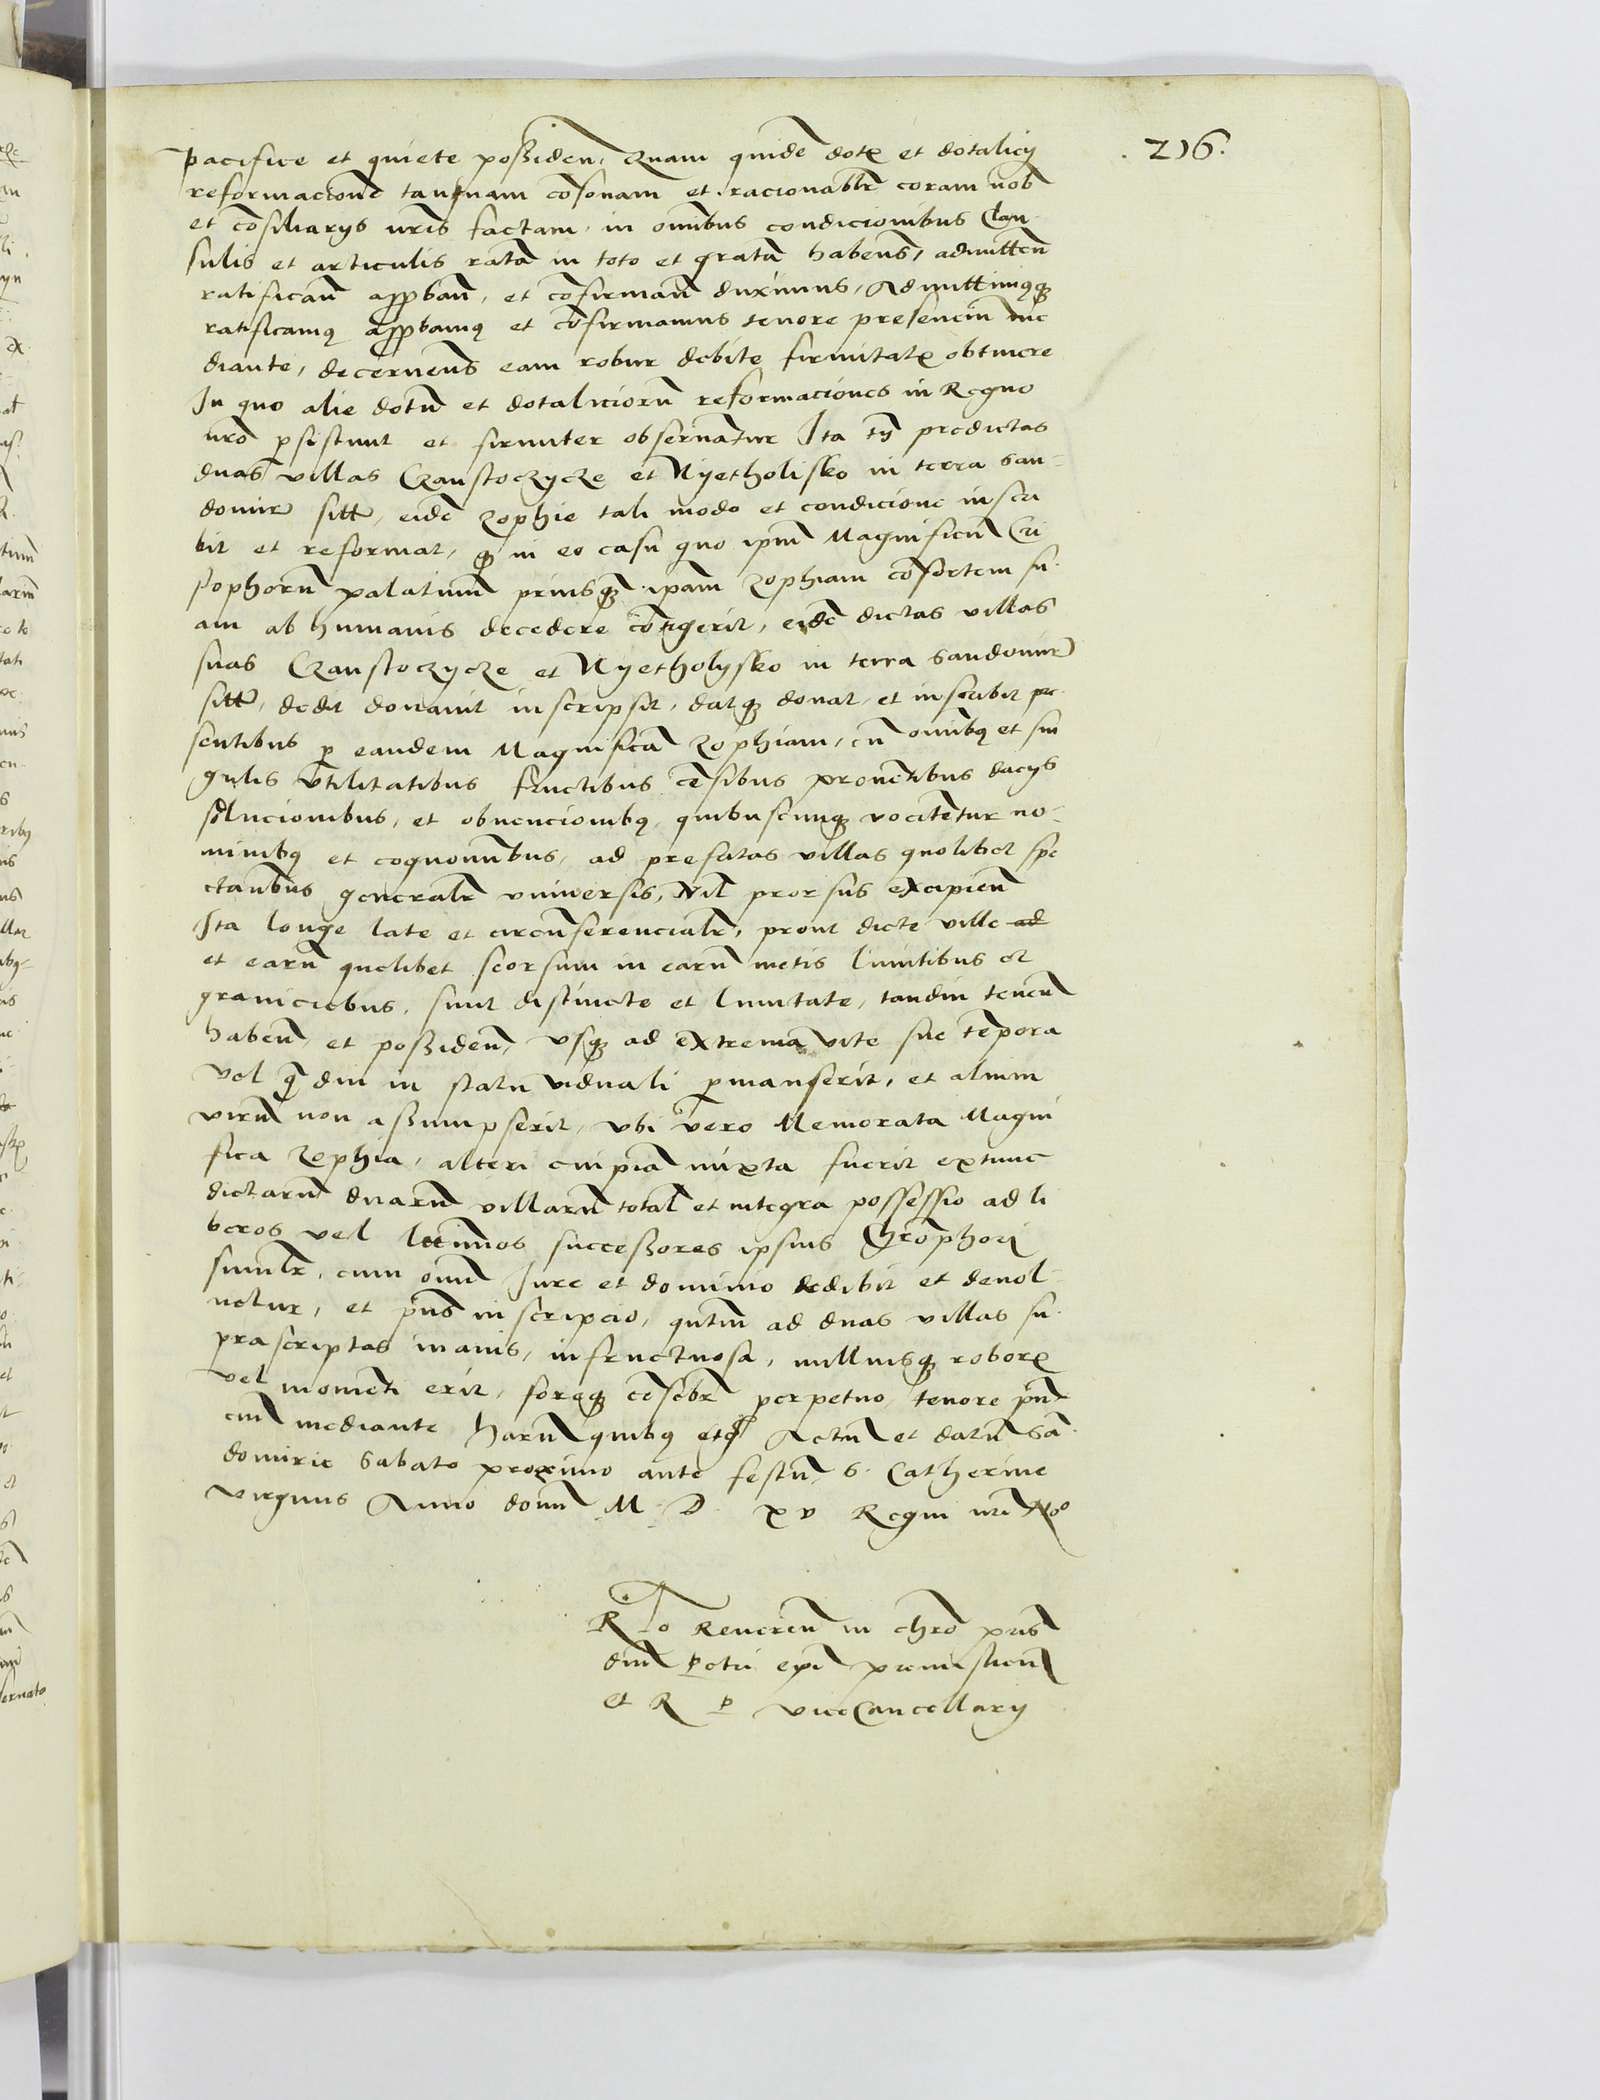 .216.
pacifice et quiete possiden, Quam quidē dotꝭ et dotalicÿ
reformacionē tanquam cōsonam et racionablr coram nob
et cōsiliarÿs nrīs factam, in omībus condicionibus Clau
sulis et articulis ratā in toto et gratā habens, admitten
ratifican approban, et cōfirman duximus, Admittimusqꝫ
ratificamꝰ approbamꝰ et cōfirmamus tenore presenciū me
diante, decernens eam robur debite firmitatꝭ obtinere
In quo alie dotū et dotaliciorū reformaciones in Regno
nrō ꝑsistunt et firmiter obseruātur Ita tn predictas
duas villas Czanstoczycze et Nyetholisko in terra San-
domir sitt, eidē Zophie tali modo et condicione inscri
bit et reformat, qꝫ in eo casu quo ipm Magnificū Cri
stophorū palatinū priusqꝫ ipam Zophiam cōsortem su
am ab humanis decedere cōtigerit, eidē dictas villas
suas Czanstoczycze et Nyetholysko in terra Sandomir
sitt, dedit donauit inscripsit, datqꝫ donat, et inscribit pre
sentibus ꝑ eandem Magnificā Zophiam, cū omībꝰ et sin
gulis vtilitatibus fructibus cēsibus prouētibus dacÿs
solucionibus, et obuencionibꝰ, quibuscunqꝫ vocitētur no-
minibꝰ et cognomībus, ad prefatas villas quolibet spe
ctantibus generalr vniuersis, Nil prorsus excipien
Ita longe late et circūferencialr, prout dicte ville ad
et earū quelibet seorsum in earū metis limitibus et
graniciebus, sunt distincte et limitate, tandiu tenen
haben et possiden, vsqꝫ ad extrema vite sue tēpora
vel qā diu in statu viduali ꝑmanserit, et alium
virū non assumpserit, vbi vero Memorata Magni
fica Zophia, alteri cuipiā nupta fuerit extunc
dictarū duarū villarū total et integra possessio ad li
beros vel ltimos successores ipsius Chrōphori
similr, cum omī Jure et dominio redibit et deuol
uetur, et pn̄s inscripcio, quātū ad duas villas su
prascriptas inanis, infructuosa, nulliusqꝫ roborꝭ
vel momēti erit, foreqꝫ cēsebr perpetuo, tenore pn̄
ciū mediante, harū quibꝰ etc Actū et datū Sā
domirie Sabato proximo ante festū S. Catherine
virginis Anno domī M D XV Regni nrī No
Rlo Reueren in chrō pris
dnī Petri epī premislien
et R P viceCancellarÿ